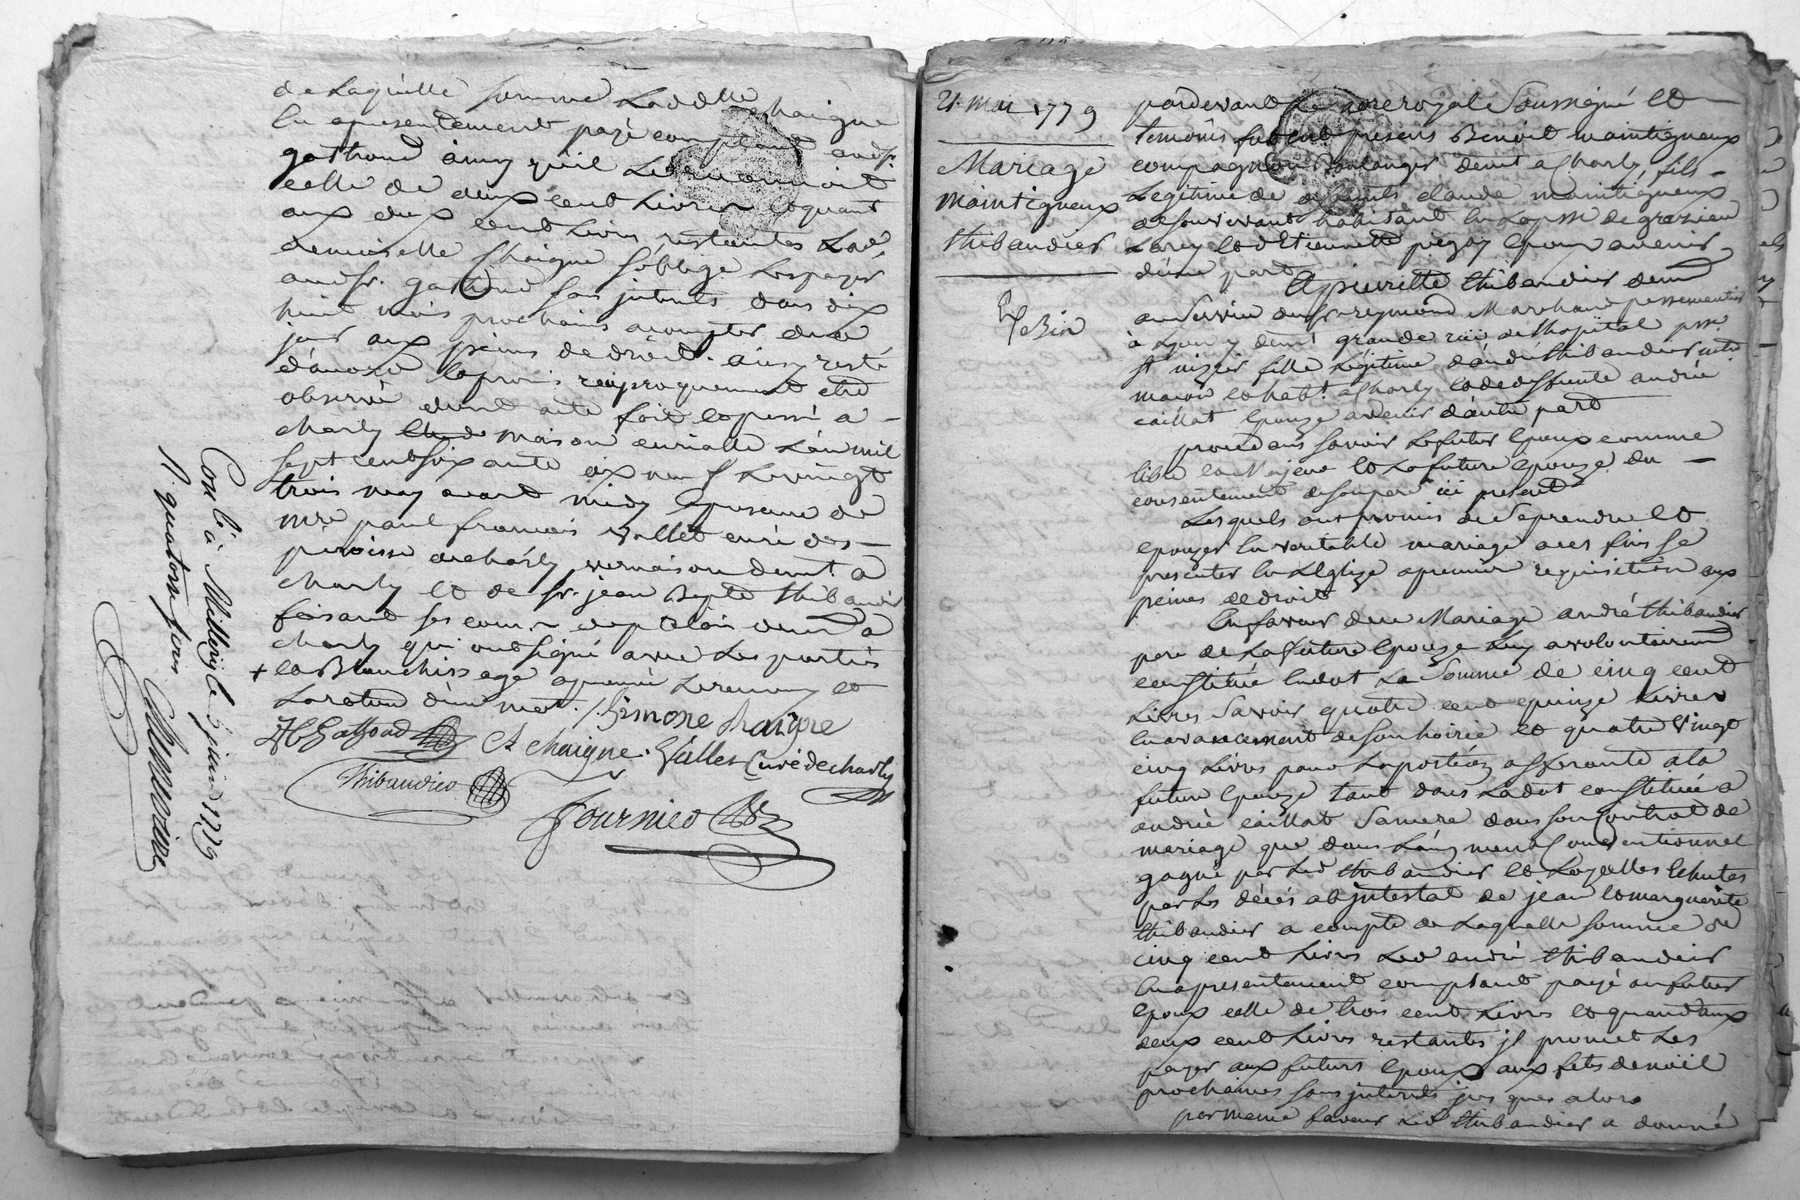 de Laquelle somme Ladelle Chaigne
En apresentement payé comptant audsr.
gathoud ainsy qu'il Le reconnoit
celle de deux cent Livres Et quant
aux deux cent Livres restantes Lad.
demoiselle Chaigne s'oblige Les payer
audsr. gathoud sans interets dans dix
huit mois prochains a compter de ce
jour aux peines de droit. ainsy resté
d'acord Et promis reciproquement etre
observé dont acte fait Et passé a
charly maison curialle L'an mil
sept cent soixante dix neuf Le vingt
trois may avant midy En presence de
mre paul francois vallet curé des
paroisse de charly vernaison demt. a
charly Et de sr. jean Bapte thibaudier
faisant ses cours de palais demt a
charly qui ont signé avec Les parties
+ Et Blanchissage approuvé Le renvoy Et
La rature d'un mot. / Simone Chaigne
Gathoud C chaigne. Vallet Curé de charly
Thibaudier
Fournier
Con.lé à Millery le 5 juin 1779
R quatorze sous
21. Mai 1779
Mariage
Maintigneux
thibaudier
pardevant Le nore royal Soussigné Et
temoins furent presens Benoit maintigneux
compagnon Boulanger demt a Charly, fils
Legitime de deffunts claude maintigneux
de son vivant habitant En La psse de grezieu
Larcy Et d'Etiennette pezay Epoux avenir
d'une part
Et pierrette thibaudier demt
au Service du sr. reymond Marchand passementier
à Lyon y demt grande rüe de l'hopital psse.
st nizier fille Légitime d'andré thibaudier mtre
maçon Et habt. a Charly Et de deffunte andrée
caillat Epouze avenir d'autre part
procedans savoir Le futur Epoux comme
libre Et Majeur Et La future Epouze du
consentement de son pere ici present
Lesquels ont promis de Se prendre Et
Epouzer En veritable mariage a ces fins se
presenter En L'Eglize a premiere requisition aux
peines de droit
En faveur de ce Mariage andré thibaudier
pere de La future Epouze Luy a volontairement
constitué En dot La Somme de cinq cent
Livres Savoir quatre cent quinze Livres
En avancement de son hoirie Et quatre vingt
cinq Livres pour La portion afferante a la
future Epouze tant dans La dot constituée a
andrée caillat Sa mere dans son Contrat de
mariage que dans L'augment Conventionnel
gagné par Led thibaudier Et a Elles Echutes
par Le décés ab intestat de jean Et marguerite
thibaudier a compte de Laquelle somme de
cinq cent Livres Led andré thibaudier
En a presentement comptant payé au futur
Epoux celle de trois cent Livres Et quand aux
deux cent Livres restantes il promet Les
payer aux futurs Epoux aux fetes de noël
prochaines sans interets jus ques alors
par meme faveur Led thibaudier a donné